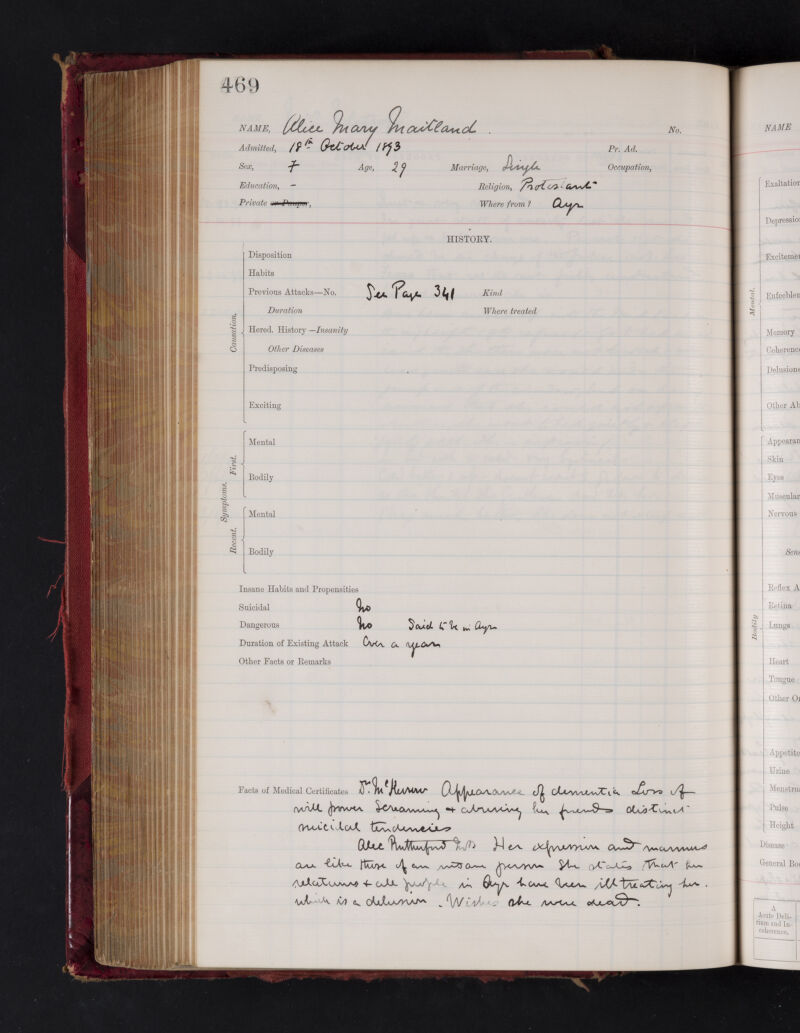 469
NAME, Alice Mary Maitland. No.
Admitted, 18th October 1893 Pr. Ad.
Sex, F Age, 29 Marriage, Single Occupation,
Education, - Religion, Protestant
Private or Pauper, Where from? Ayr
HISTORY.
Disposition
Habits
Previous Attacks—No. See Page 341 Kind
Duration Where treated
Hered. History—Insanity
Other Diseases
Predisposing
Exciting
Causation.
Mental
Bodily
First.
Symptoms.
Mental
Bodily
Recent.
Insane Habits and Propensities
Suicidal No
Dangerous No Said to be in Ayr
Duration of Existing Attack Over a year
Other Facts or Remarks
Facts of Medical Certificates Dr. Appearance of dementia Loss of
will power Screaming & abusing her friends distinct
suicidal tendencies
Alec Rutherfurd Her expression and manners
are like those of an insane person She states that her
relatives & all people in Ayr have been illtreating her.
which is a delusion. Wishes she were dead.
NAME
Exaltation
Depression
Excitemen
Enfeeblem
Mental.
Memory
Coherence
Delusions
Other Ab
Appearan
Skin
Eyes
Muscular
Nervous
Sens
Reflex A
Retina
Lungs
Bodily
Heart
Tongue
Other Or
Appetite
Urine
Menstru
Pulse
Height
Disease
General Bod
A
Acute Deli-
rium and In-
coherence.